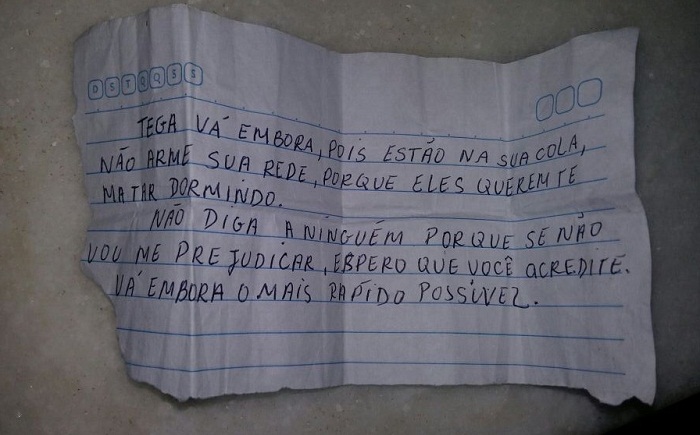 D S T Q Q S S
TEGA VÁ EMBORA, POIS ESTÃO NA SUA COLA,
NÃO ARME SUA REDE, PORQUE ELES QUEREM TE
MATAR DORMINDO.
NÃO DIGA A NINGUÉM PORQUE SE NÃO
VOU ME PREJUDICAR, ESPERO QUE VOCÊ ACREDITE.
VÁ EMBORA O MAIS RÁPIDO POSSÍVEL.